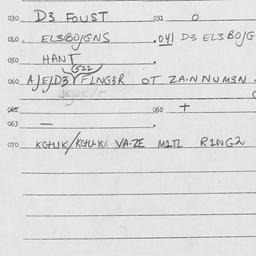 030 D3 FOUST 031 O
040 EL3BO/GNS .041 D3 EL3BO/G
050 HANT
522
060 A/E/D3 FINGER OT ZAINNUM3N
061 062 +
063 —
070 KCHUK/KCHUK VA-ZE M1TL R1NG2